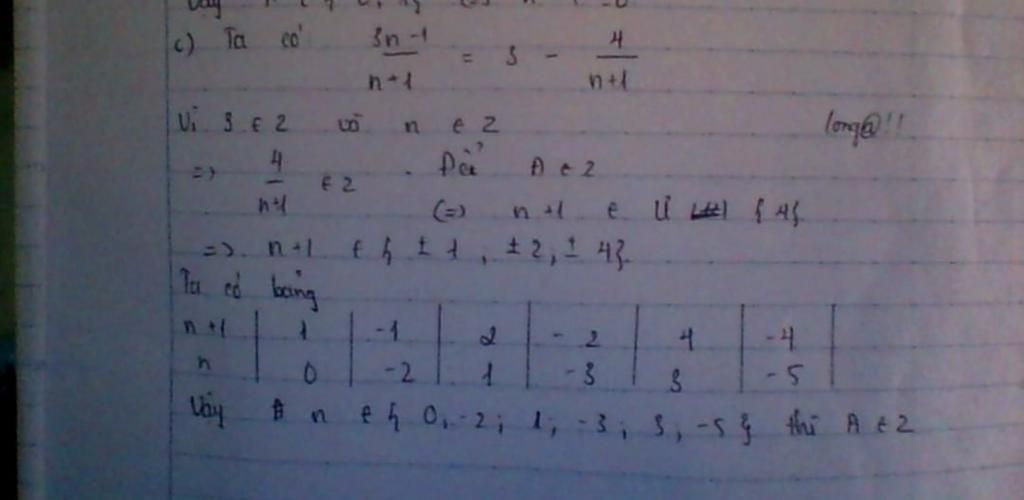 c) Ta có 3n-1/n+1 = 3 - 4/n+1
Vì 3 ∈ Z và n ∈ Z long@!!
=> 4/n+1 ∈ Z . Để A ∈ Z
(=) n+1 ∈ Ư {4}
=> n+1 ∈ { ±1, ±2, ±4}
Ta có bảng
n+1 1 -1 2 -2 4 -4
n 0 -2 1 -3 3 -5
Vậy n ∈ { 0, -2; 1; -3; 3, -5 } thì A ∈ Z